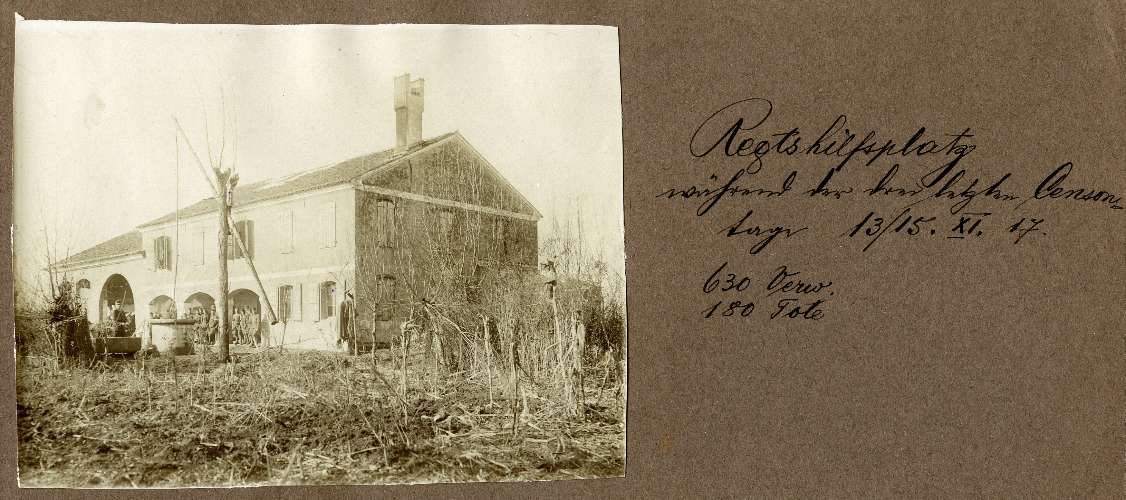 Regtshilfsplatz
während der drei letzten Censon-
tage 13/15. XI. 17.
630 Verw.
180 Tote